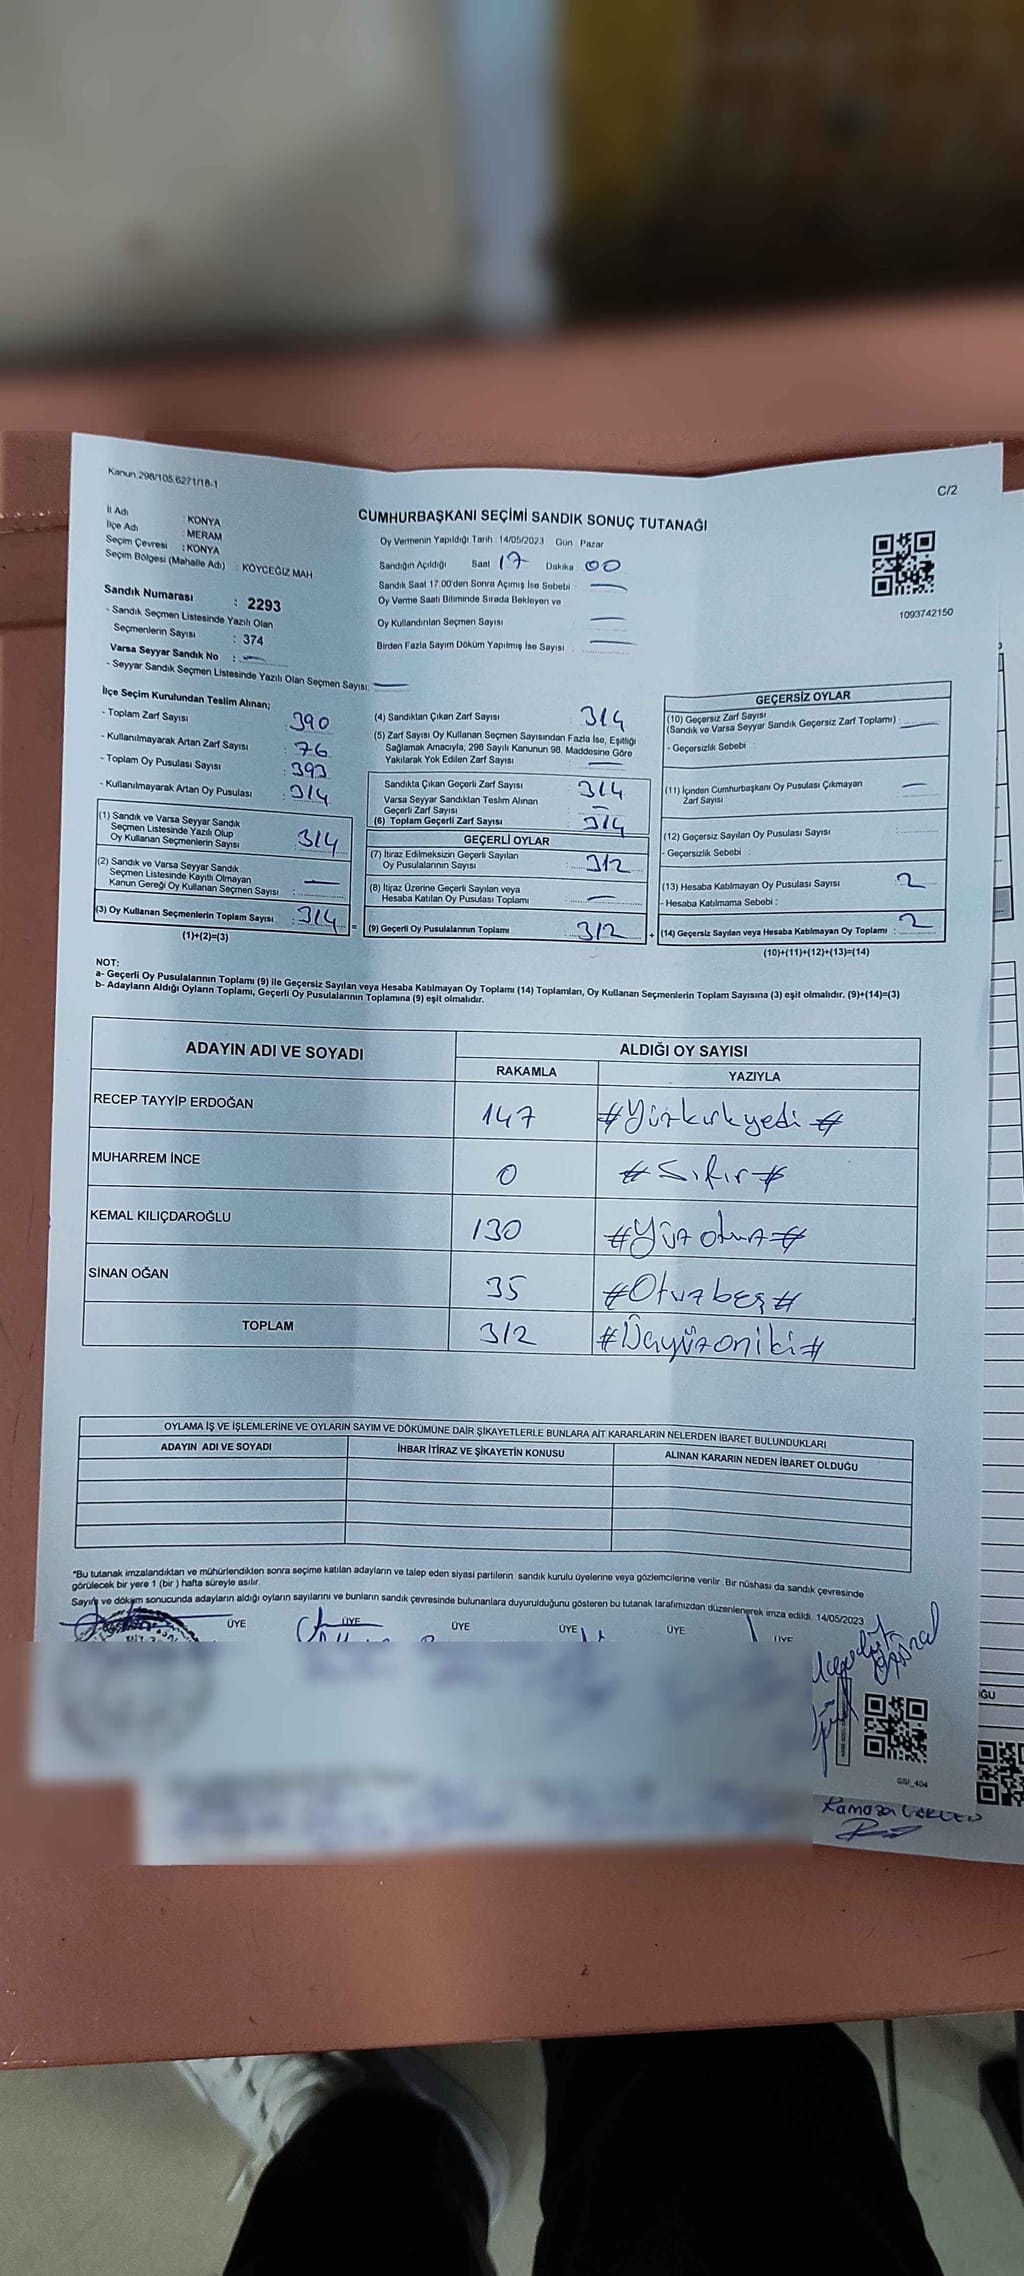 Kanun 298/105,6271/18-1
C/2
CUMHURBAŞKANI SEÇİMİ SANDIK SONUÇ TUTANAĞI
İl Adı : KONYA
İlçe Adı : MERAM
Seçim Çevresi : KONYA
Seçim Bölgesi (Mahalle Adı) : KÖYCEĞİZ MAH
Sandık Numarası : 2293
- Sandık Seçmen Listesinde Yazılı Olan
Seçmenlerin Sayısı : 374
Varsa Seyyar Sandık No :
- Seyyar Sandık Seçmen Listesinde Yazılı Olan Seçmen Sayısı:
Oy Vermenin Yapıldığı Tarih : 14/05/2023 Gün : Pazar
Sandığın Açıldığı Saat 17 Dakika 00
Sandık Saat 17.00'den Sonra Açımış İse Sebebi :
Oy Verme Saati Bitiminde Sırada Bekleyen ve
Oy Kullandırılan Seçmen Sayısı
Birden Fazla Sayım Döküm Yapılmış İse Sayısı
1093742150
İlçe Seçim Kurulundan Teslim Alınan;
- Toplam Zarf Sayısı : 390
- Kullanılmayarak Artan Zarf Sayısı : 76
- Toplam Oy Pusulası Sayısı : 393
- Kullanılmayarak Artan Oy Pusulası : 314
(1) Sandık ve Varsa Seyyar Sandık
Seçmen Listesinde Yazılı Olup
Oy Kullanan Seçmenlerin Sayısı : 314
(2) Sandık ve Varsa Seyyar Sandık
Seçmen Listesinde Kayıtlı Olmayan
Kanun Gereği Oy Kullanan Seçmen Sayısı :
(3) Oy Kullanan Seçmenlerin Toplam Sayısı : 314
(1)+(2)=(3)
(4) Sandıktan Çıkan Zarf Sayısı : 314
(5) Zarf Sayısı Oy Kullanan Seçmen Sayısından Fazla İse, Eşitliği
Sağlamak Amacıyla, 298 Sayılı Kanunun 98. Maddesine Göre
Yakılarak Yok Edilen Zarf Sayısı :
Sandıkta Çıkan Geçerli Zarf Sayısı : 314
Varsa Seyyar Sandıktan Teslim Alınan
Geçerli Zarf Sayısı :
(6) Toplam Geçerli Zarf Sayısı : 314
GEÇERLİ OYLAR
(7) İtiraz Edilmeksizin Geçerli Sayılan
Oy Pusulalarının Sayısı : 312
(8) İtiraz Üzerine Geçerli Sayılan veya
Hesaba Katılan Oy Pusulası Toplamı :
= (9) Geçerli Oy Pusulalarının Toplamı : 312
GEÇERSİZ OYLAR
(10) Geçersiz Zarf Sayısı
(Sandık ve Varsa Seyyar Sandık Geçersiz Zarf Toplamı) :
- Geçersizlik Sebebi :
(11) İçinden Cumhurbaşkanı Oy Pusulası Çıkmayan
Zarf Sayısı :
(12) Geçersiz Sayılan Oy Pusulası Sayısı :
- Geçersizlik Sebebi :
(13) Hesaba Katılmayan Oy Pusulası Sayısı : 2
- Hesaba Katılmama Sebebi :
+ (14) Geçersiz Sayılan veya Hesaba Katılmayan Oy Toplamı : 2
(10)+(11)+(12)+(13)=(14)
NOT:
a- Geçerli Oy Pusulalarının Toplamı (9) ile Geçersiz Sayılan veya Hesaba Katılmayan Oy Toplamı (14) Toplamları, Oy Kullanan Seçmenlerin Toplam Sayısına (3) eşit olmalıdır. (9)+(14)=(3)
b- Adayların Aldığı Oyların Toplamı, Geçerli Oy Pusulalarının Toplamına (9) eşit olmalıdır.
ADAYIN ADI VE SOYADI ALDIĞI OY SAYISI
RAKAMLA YAZIYLA
RECEP TAYYİP ERDOĞAN 147 #Yüzkırkyedi#
MUHARREM İNCE 0 #Sıfır#
KEMAL KILIÇDAROĞLU 130 #Yüz otuz#
SİNAN OĞAN 35 #Otuzbeş#
TOPLAM 312 #Üçyüzoniki#
OYLAMA İŞ VE İŞLEMLERİNE VE OYLARIN SAYIM VE DÖKÜMÜNE DAİR ŞİKAYETLERLE BUNLARA AİT KARARLARIN NELERDEN İBARET BULUNDUKLARI
ADAYIN ADI VE SOYADI İHBAR İTİRAZ VE ŞİKAYETİN KONUSU ALINAN KARARIN NEDEN İBARET OLDUĞU
*Bu tutanak imzalandıktan ve mühürlendikten sonra seçime katılan adayların ve talep eden siyasi partilerin sandık kurulu üyelerine veya gözlemcilerine verilir. Bir nüshası da sandık çevresinde
görülecek bir yere 1 (bir ) hafta süreyle asılır.
Sayım ve döküm sonucunda adayların aldığı oyların sayılarını ve bunların sandık çevresinde bulunanlara duyurulduğunu gösteren bu tutanak tarafımızdan düzenlenerek imza edildi. 14/05/2023
ÜYE ÜYE ÜYE ÜYE ÜYE ÜYE
SSİ_404
ĞU